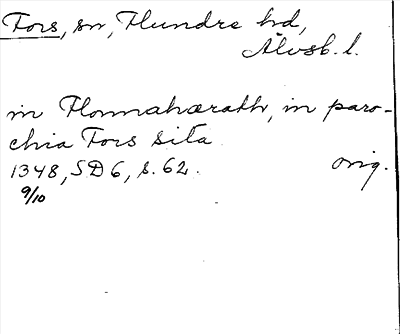 Fors, sn, Flundre hd,
Älvsb. l.
in Flonnaharath, in paro-
chia Fors sita
1348, SD 6, s. 62. orig.
9/10